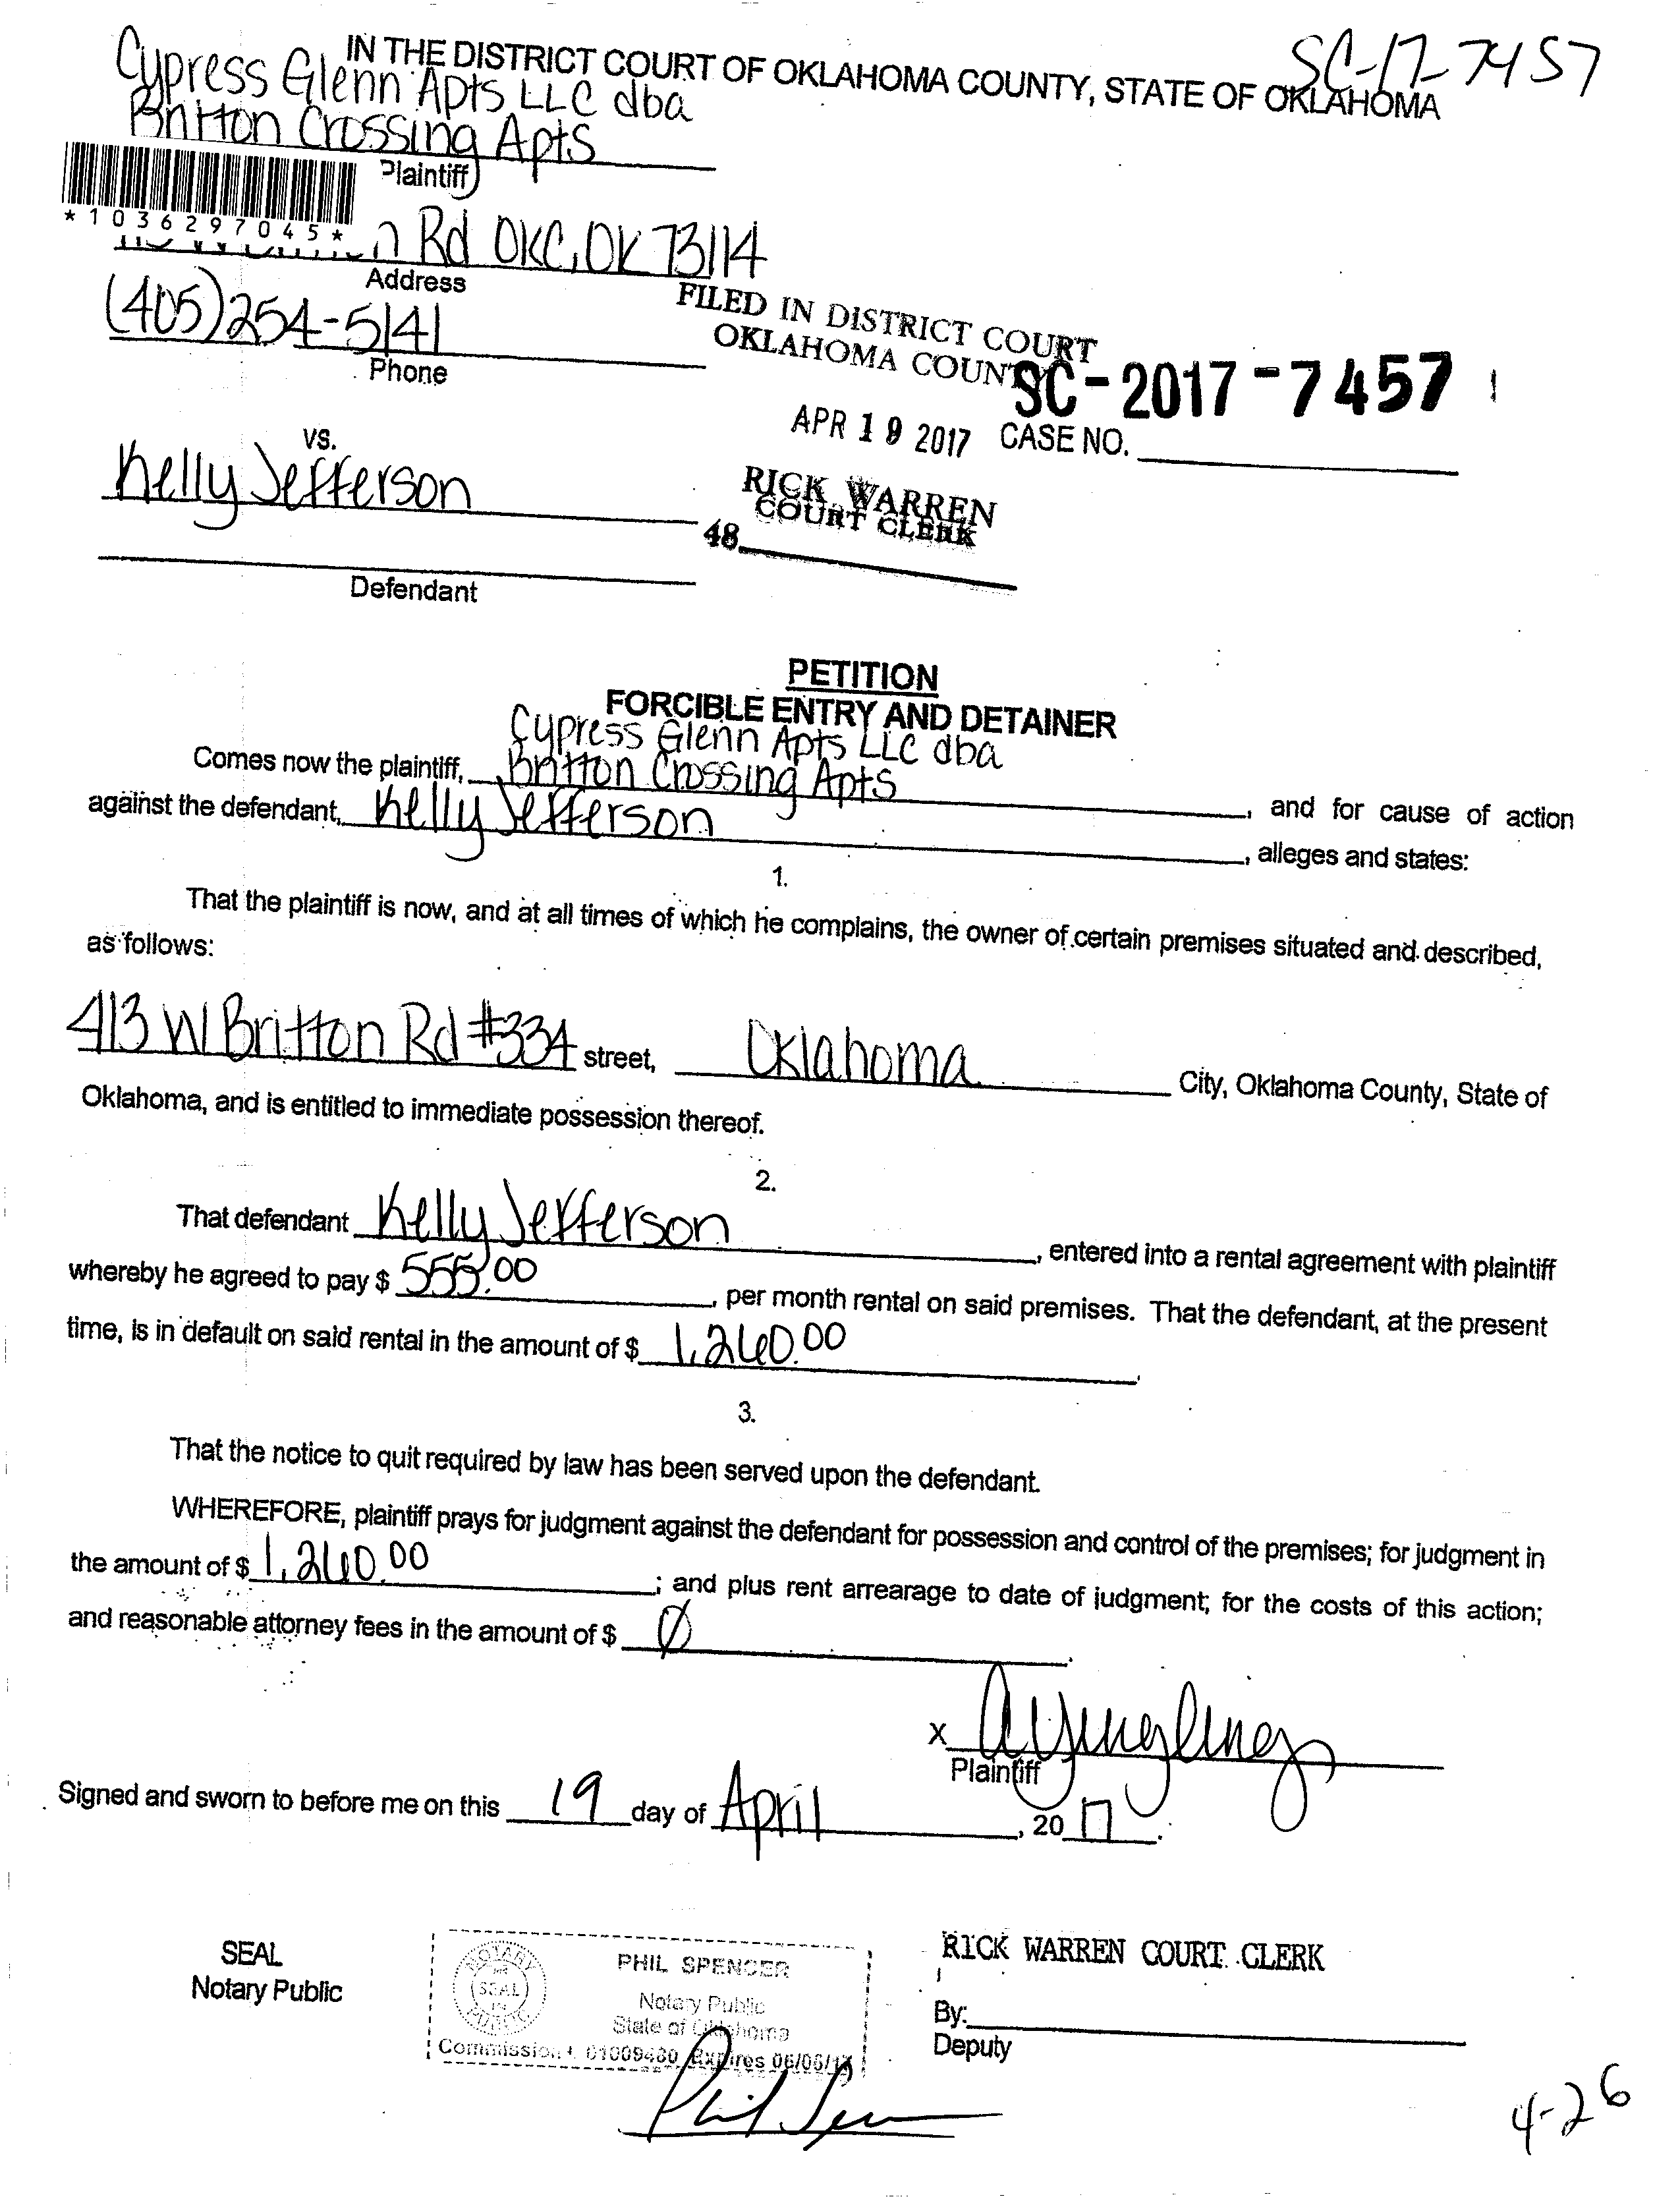 SC-17-7457
IN THE DISTRICT COURT OF OKLAHOMA COUNTY, STATE OF OKLAHOMA
Cypress Glenn Apts LLC dba
Britton Crossing Apts
Plaintiff
*1036297045*
Rd OKC, OK 73114
Address
(405)254-5141
Phone
FILED IN DISTRICT COURT
OKLAHOMA COUNTY
SC-2017-7457
APR 19 2017 CASE NO.
vs.
Kelly Jefferson
RICK WARREN
COURT CLERK
48
Defendant
PETITION
FORCIBLE ENTRY AND DETAINER
Cypress Glenn Apts LLC dba
Comes now the plaintiff, Britton Crossing Apts, and for cause of action
against the defendant, Kelly Jefferson, alleges and states:
1.
That the plaintiff is now, and at all times of which he complains, the owner of certain premises situated and described,
as follows:
413 W Britton Rd #334 street, Oklahoma City, Oklahoma County, State of
Oklahoma, and is entitled to immediate possession thereof.
2.
That defendant Kelly Jefferson, entered into a rental agreement with plaintiff
whereby he agreed to pay $ 555.00, per month rental on said premises. That the defendant, at the present
time, is in default on said rental in the amount of $ 1,260.00.
3.
That the notice to quit required by law has been served upon the defendant.
WHEREFORE, plaintiff prays for judgment against the defendant for possession and control of the premises; for judgment in
the amount of $ 1,260.00; and plus rent arrearage to date of judgment; for the costs of this action;
and reasonable attorney fees in the amount of $ Ø.
x A Yingling
Plaintiff
Signed and sworn to before me on this 19 day of April, 2017.
SEAL
Notary Public
NOTARY PUBLIC
SEAL
PHIL SPENCER
Notary Public
State of Oklahoma
Commission # 01009480 Expires 06/06/17
Phil Spencer
RICK WARREN COURT CLERK
By:
Deputy
4-26